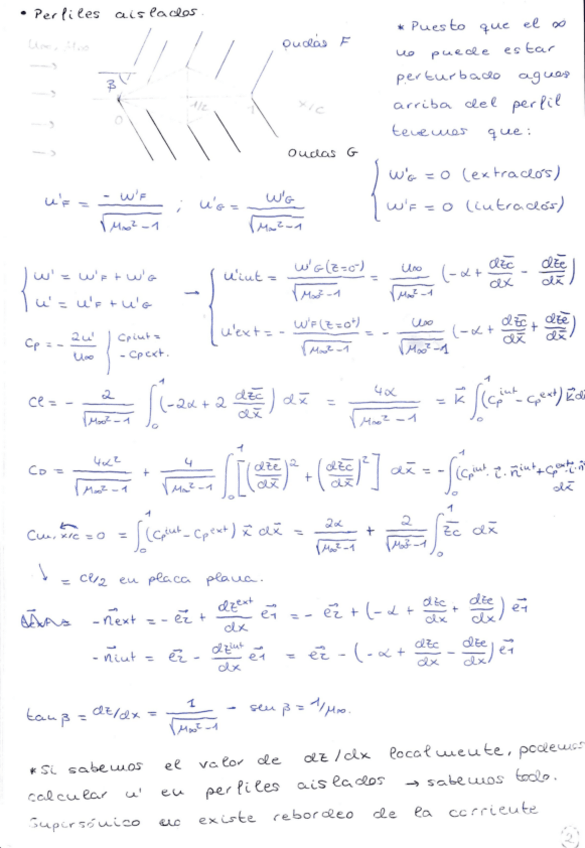 • Perfiles aislados.
U∞, M∞
Ondas F
β
0
1/2
1
x/c
Ondas G
* Puesto que el ∞
no puede estar
perturbado aguas
arriba del perfil
tenemos que:
{ w'G = 0 (extrados)
w'F = 0 (intrados)
u'F = -w'F / √(M∞²-1) ; u'G = w'G / √(M∞²-1)
{ w' = w'F + w'G
u' = u'F + u'G
→ { u'int = w'G(z=0⁻) / √(M∞²-1) = U∞ / √(M∞²-1) (-α + dz̄c/dx̄ - dz̄e/dx̄)
u'ext = - w'F(z=0⁺) / √(M∞²-1) = - U∞ / √(M∞²-1) (-α + dz̄c/dx̄ + dz̄e/dx̄)
Cp = - 2u'/U∞ } Cp int = - Cp ext.
Cl = - 2/√(M∞²-1) ∫₀¹ (-2α + 2 dz̄c/dx̄) dx̄ = 4α/√(M∞²-1) = k⃗ ∫₀¹ (Cp^int - Cp^ext) k⃗
CD = 4α²/√(M∞²-1) + 4/√(M∞²-1) ∫₀¹ [(dz̄e/dx̄)² + (dz̄c/dx̄)²] dx̄ = - ∫₀¹ (Cp^int · i⃗ · n⃗^int + Cp^ext · i⃗ · n⃗ dx̄
Cm, x/c=0 = ∫₀¹ (Cp^int - Cp^ext) x̄ dx̄ = 2α/√(M∞²-1) + 2/√(M∞²-1) ∫₀¹ z̄c dx̄
↳ = Cl/2 en placa plana.
-n⃗ext = - e⃗z + dz^ext/dx e⃗1 = - e⃗z + (-α + dzc/dx + dze/dx) e⃗1
-n⃗int = e⃗z - dz^int/dx e⃗1 = e⃗z - (-α + dzc/dx - dze/dx) e⃗1
tan β = dz/dx = 1/√(M∞²-1) - sen β = 1/M∞.
* Si sabemos el valor de dz/dx localmente, podemos
calcular u' en perfiles aislados → sabemos todo.
Supersónico no existe rebordeo de la corriente
2